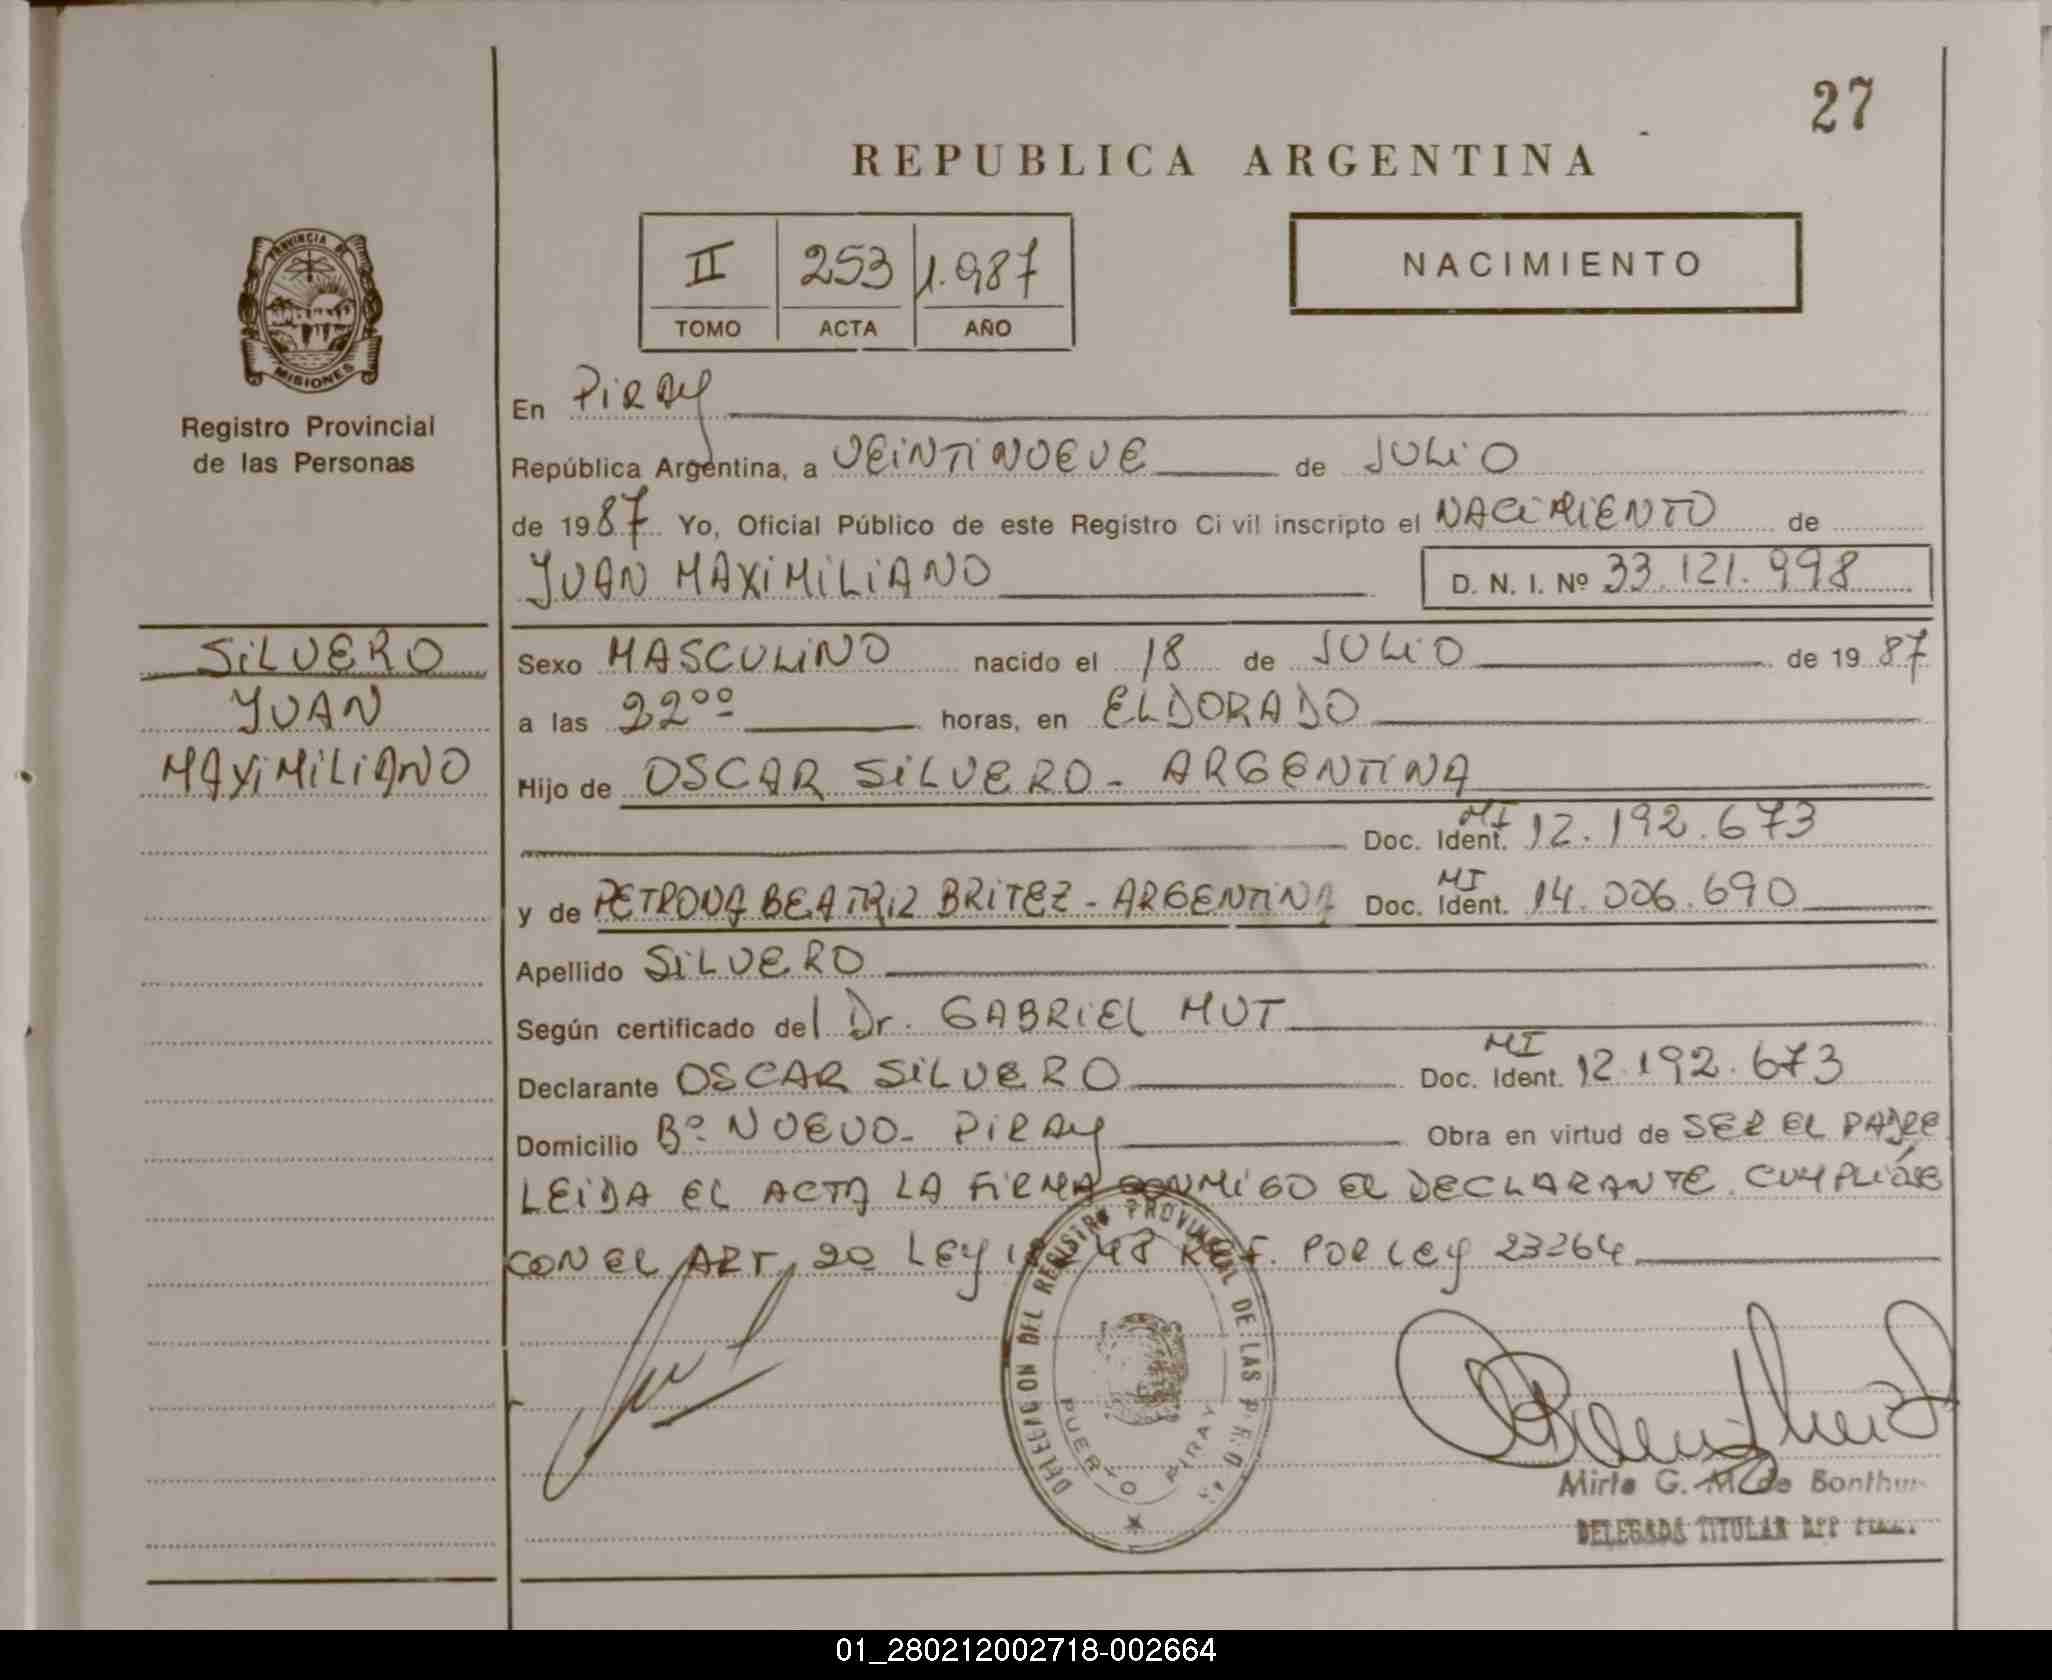 27
REPUBLICA ARGENTINA
II 253 1.987
TOMO ACTA AÑO
NACIMIENTO
PROVINCIA DE
MISIONES
Registro Provincial
de las Personas
SILVERO
JUAN
MAXIMILIANO
En PIRAY
República Argentina, a VEINTINUEVE de JULIO
de 1987 Yo, Oficial Público de este Registro Civil inscripto el NACIMIENTO de
JUAN MAXIMILIANO D. N. I. Nº 33.121.998
Sexo MASCULINO nacido el 18 de JULIO de 1987
a las 22ºº horas, en ELDORADO
Hijo de OSCAR SILVERO - ARGENTINA
Doc. Ident. MI 12.192.673
y de PETRONA BEATRIZ BRITEZ - ARGENTINA Doc. Ident. MI 14.006.690
Apellido SILVERO
Según certificado del Dr. GABRIEL MUT
Declarante OSCAR SILVERO Doc. Ident. MI 12.192.673
Domicilio Bº NUEVO - PIRAY Obra en virtud de SER EL PADRE
LEIDA EL ACTA LA FIRMA CONMIGO EL DECLARANTE. CUMPLIÓSE
CON EL ART. 20 LEY 48 POR LEY 23264
DELEGACION DEL REGISTRO PROVINCIAL DE LAS
PUERTO PIRAY
Mirta G. M. de
DELEGADA TITULAR
01_280212002718-002664